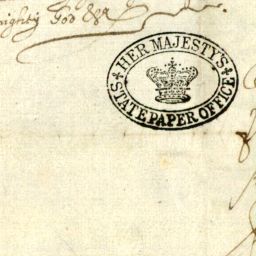 mighty God &c
HER MAJESTY'S
STATE PAPER OFFICE